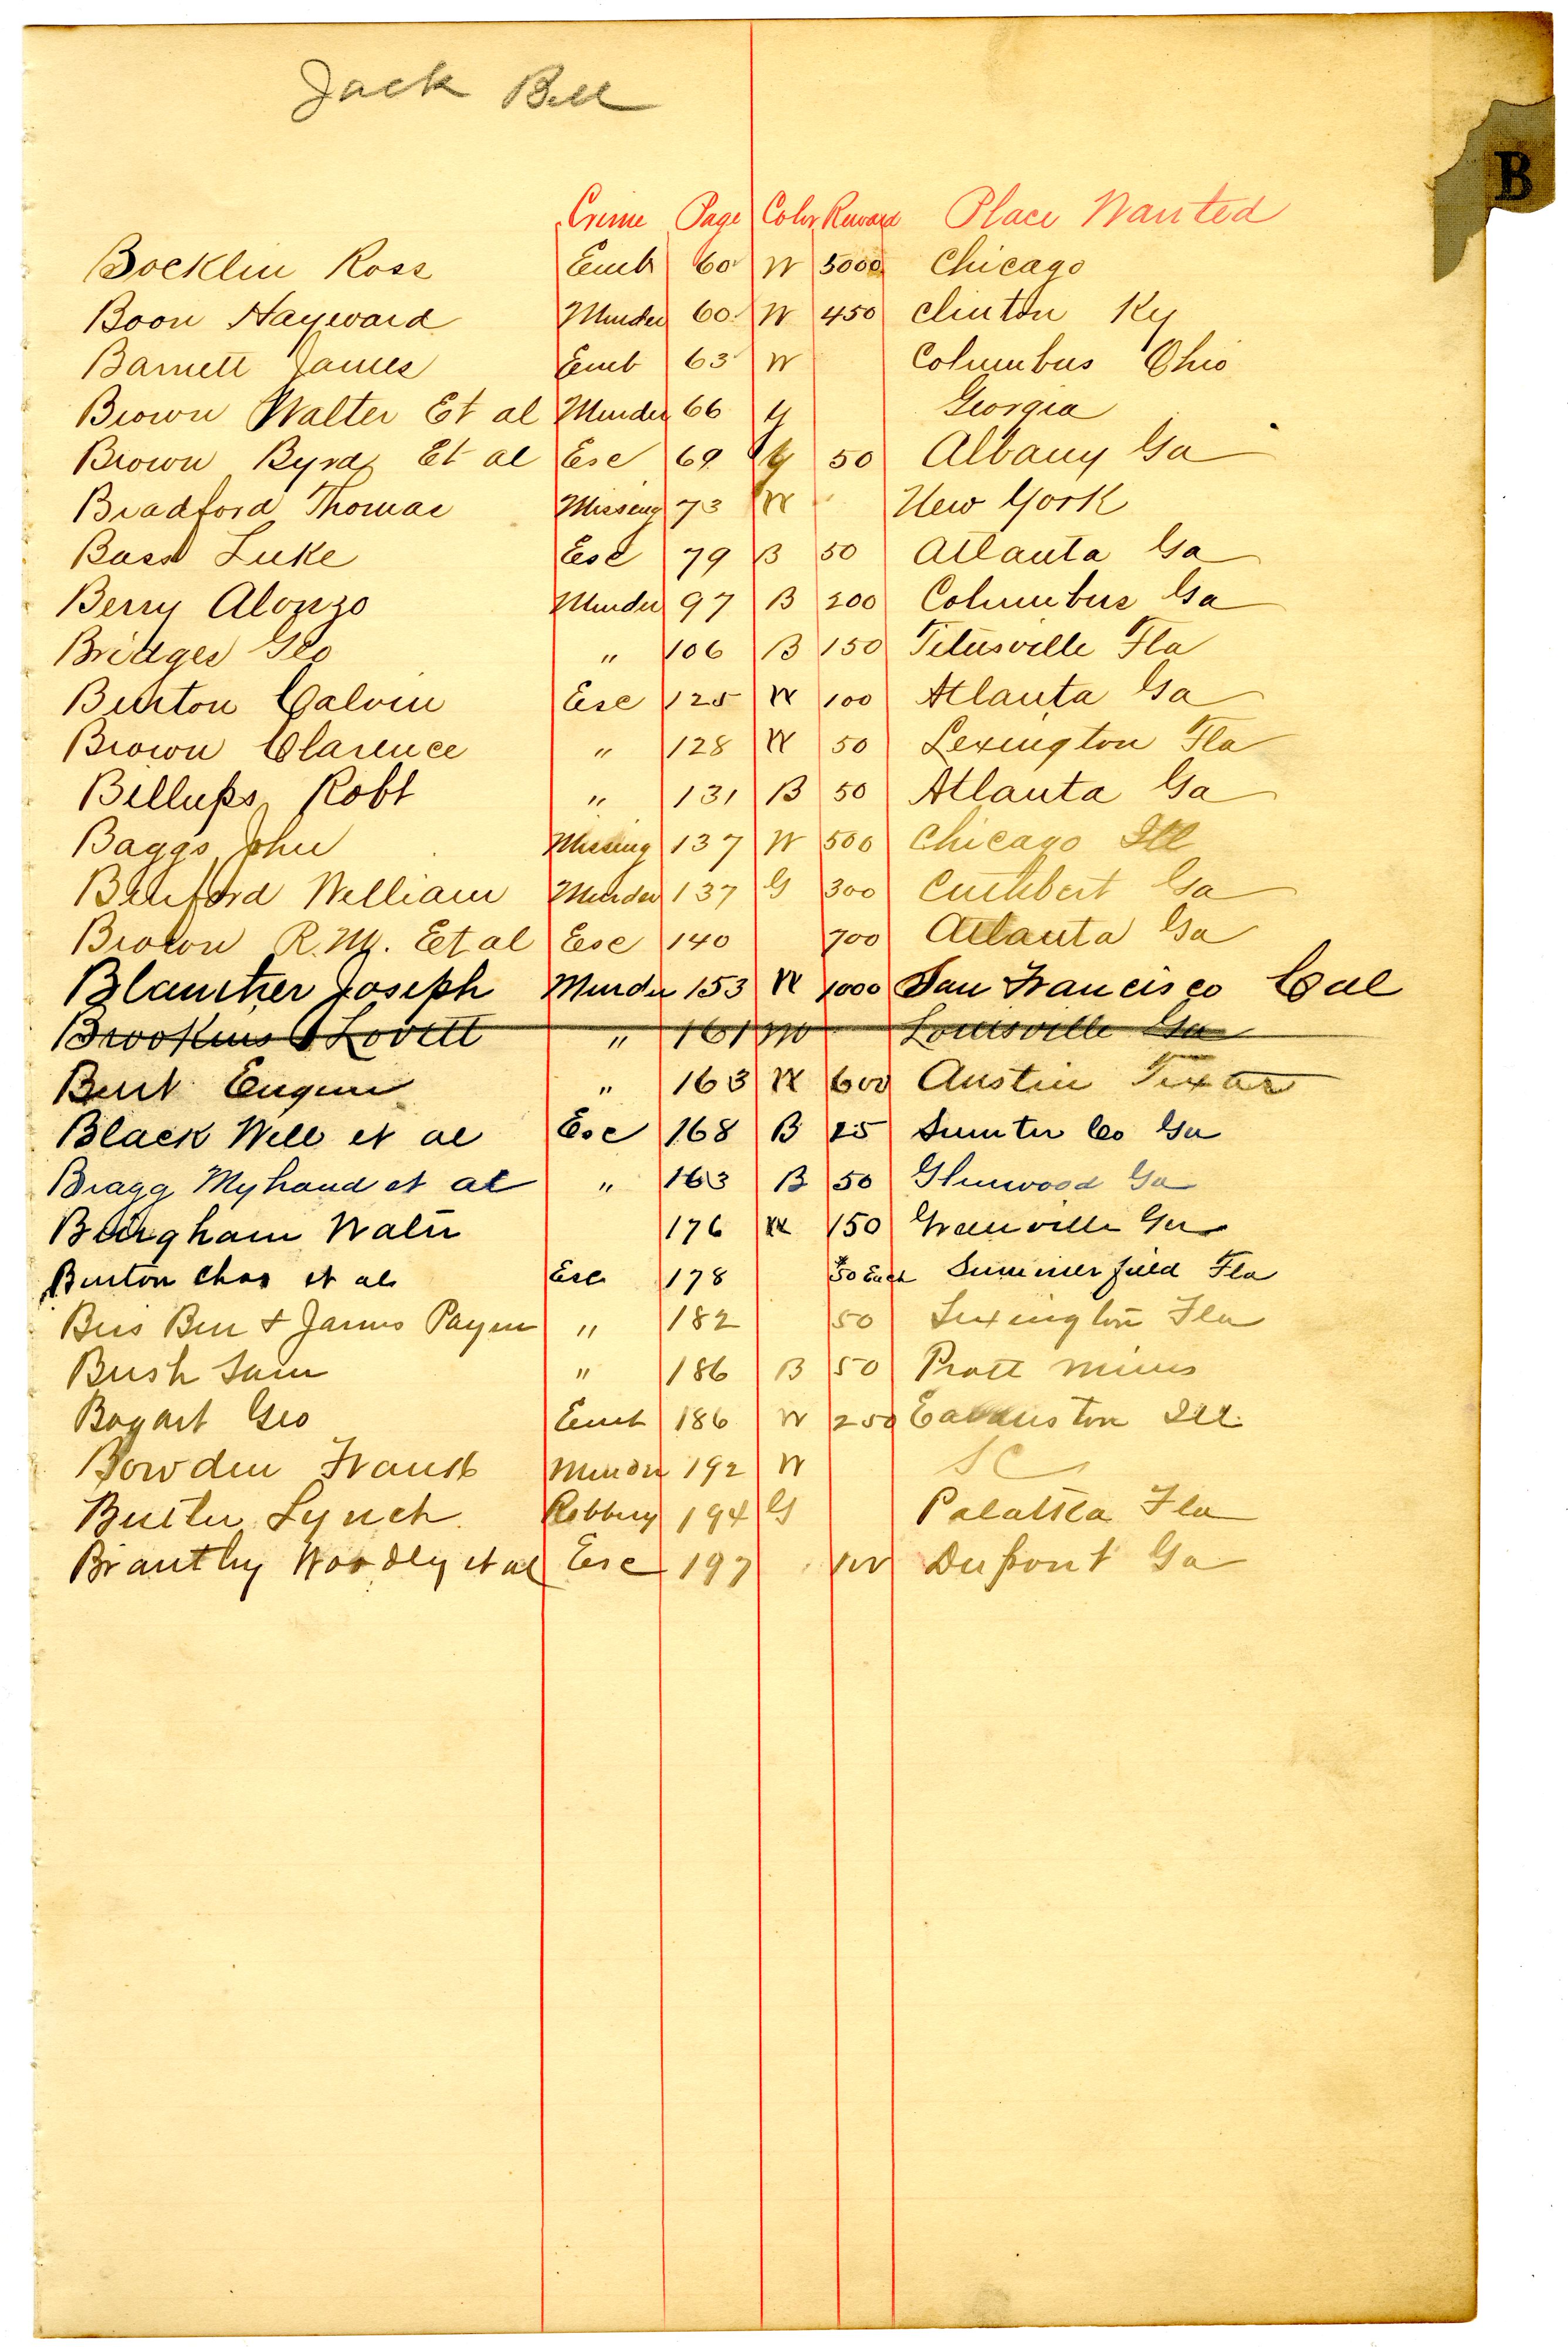 Jack Bell
B
Crime Page Color Reward Place Wanted
Bocklin Ross Emb 60 W 5000 Chicago
Boon Hayward Murder 60 W 450 Clinton Ky
Barnett James Emb 63 W Columbus Ohio
Brown Walter Et al Murder 66 G Georgia
Brown Byrd Et al Esc 69 G 50 Albany Ga
Bradford Thomas Missing 73 W New York
Bass Luke Esc 79 B 50 Atlanta Ga
Berry Alonzo Murder 97 B 200 Columbus Ga
Bridges Geo " 106 B 150 Titusville Fla
Burton Calvin Esc 125 W 100 Atlanta Ga
Brown Clarence " 128 W 50 Lexington Fla
Billups Robt " 131 B 50 Atlanta Ga
Baggs John Missing 137 W 500 Chicago Ill
Binford William Murder 137 G 300 Cuthbert Ga
Brown R.M. Et al Esc 140 700 Atlanta Ga
Blanther Joseph Murder 153 W 1000 San Francisco Cal
Brookins Lovett " 161 Louisville Ga
Burt Eugene " 163 W 600 Austin Texas
Black Will et al Esc 168 B 25 Sumter Co Ga
Bragg Myhand et al " 163 B 50 Glenwood Ga
Bingham Walter 176 W 150 Greenville Ga
Burton Chas et als Esc 178 $50 Each Summerfield Fla
Ben & James Payne " 182 50 Lexington Fla
Bush Sam " 186 B 50 Pratt Mines
Bogart Geo Emb 186 W 250 Eavanston Ill.
Bowden Frank Murder 192 W S C
Buster Lynch Robbery 194 G Palatka Fla
Brantley Woodley et al Esc 197 100 Dupont Ga